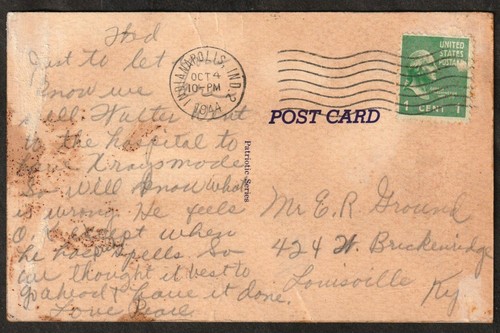 Wed
Just to let
know we
all Walter went
to the hospital to
have Xrays made
So will know what
is wrong. He feels
O.K except when
he has spells. So
we thought it best to
go ahead & have it done.
Love
INDIANAPOLIS, IND. 2
OCT 4
10-PM
1944
UNITED
STATES
POSTAGE
1 CENT 1
POST CARD
Patriotic Series
Mr E. R Ground
424 W. Breckenridge
Louisville
Ky